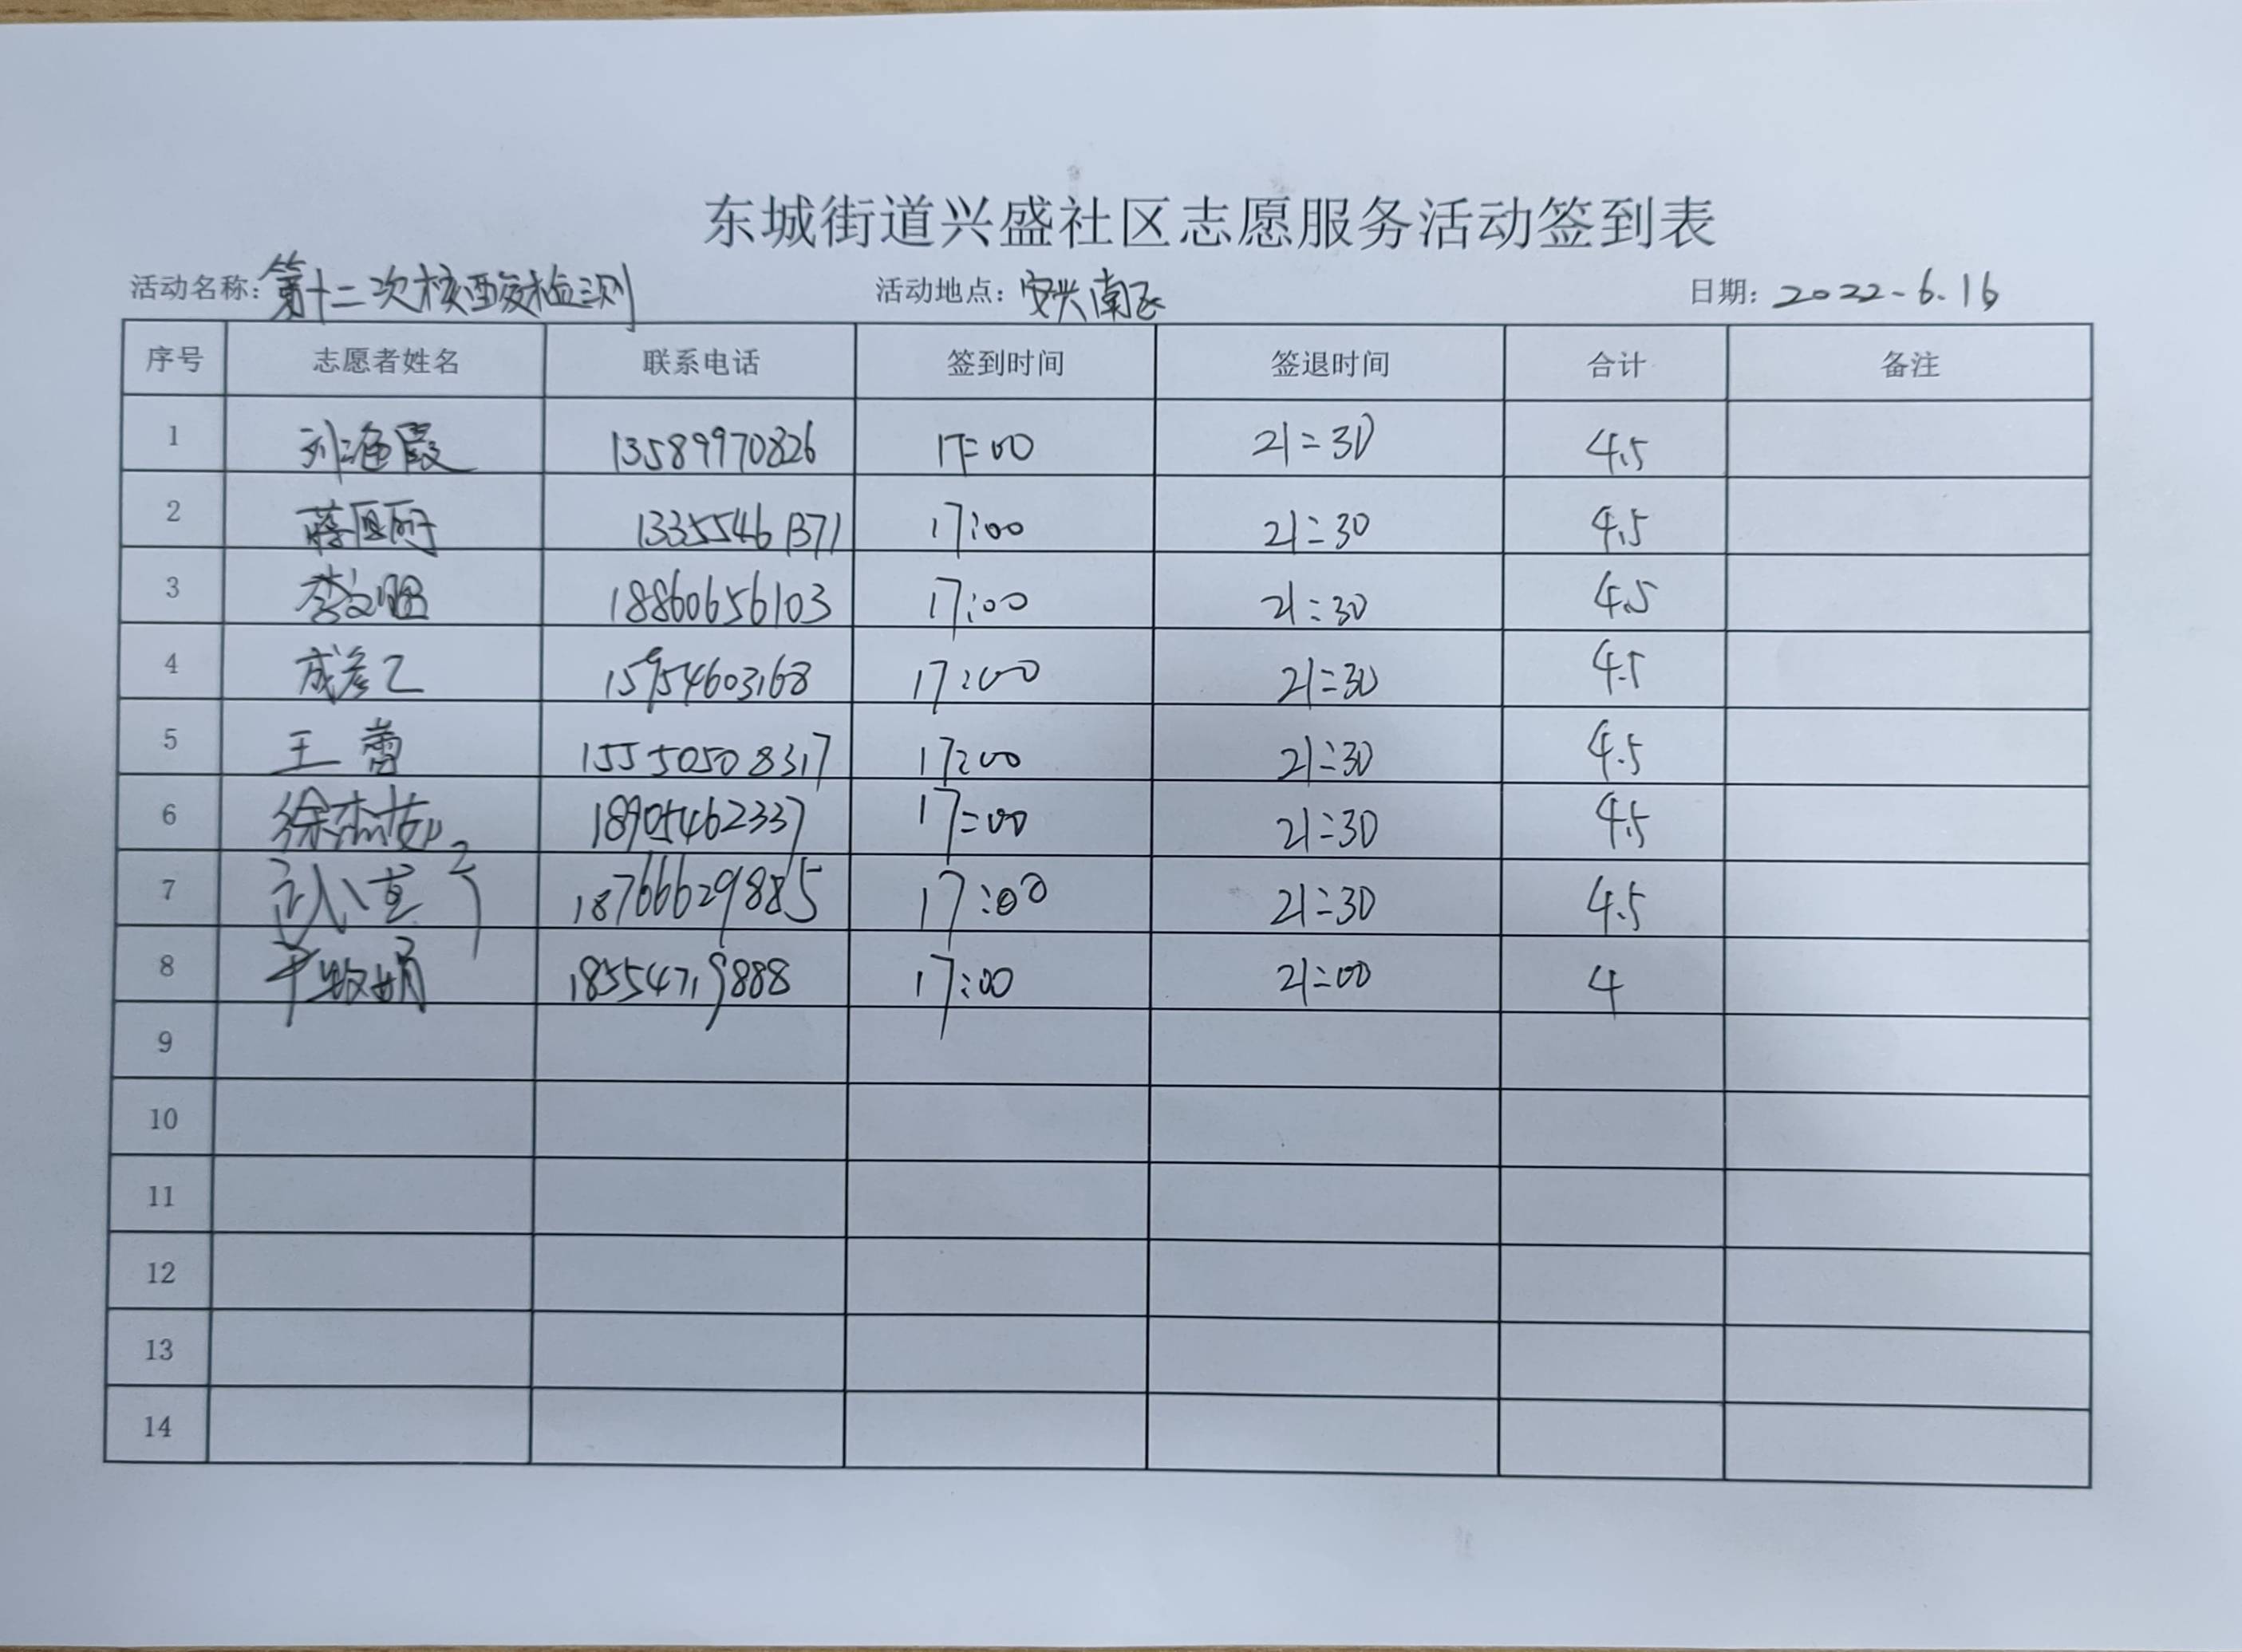 东城街道兴盛社区志愿服务活动签到表
活动名称：第十二次核酸检测 活动地点：安兴南区 日期：2022-6.16
序号 志愿者姓名 联系电话 签到时间 签退时间 合计 备注
1 刘海霞 13589970826 17:00 21:30 4.5
2 蒋 13355461371 17:00 21:30 4.5
3 李文 18860656103 17:00 21:30 4.5
4 成彦乙 15954603168 17:00 21:30 4.5
5 王蕾 15550508317 17:00 21:30 4.5
6 徐杰 18905462337 17:00 21:30 4.5
7 18766629885 17:00 21:30 4.5
8 娟 18554719888 17:00 21:00 4
9
10
11
12
13
14